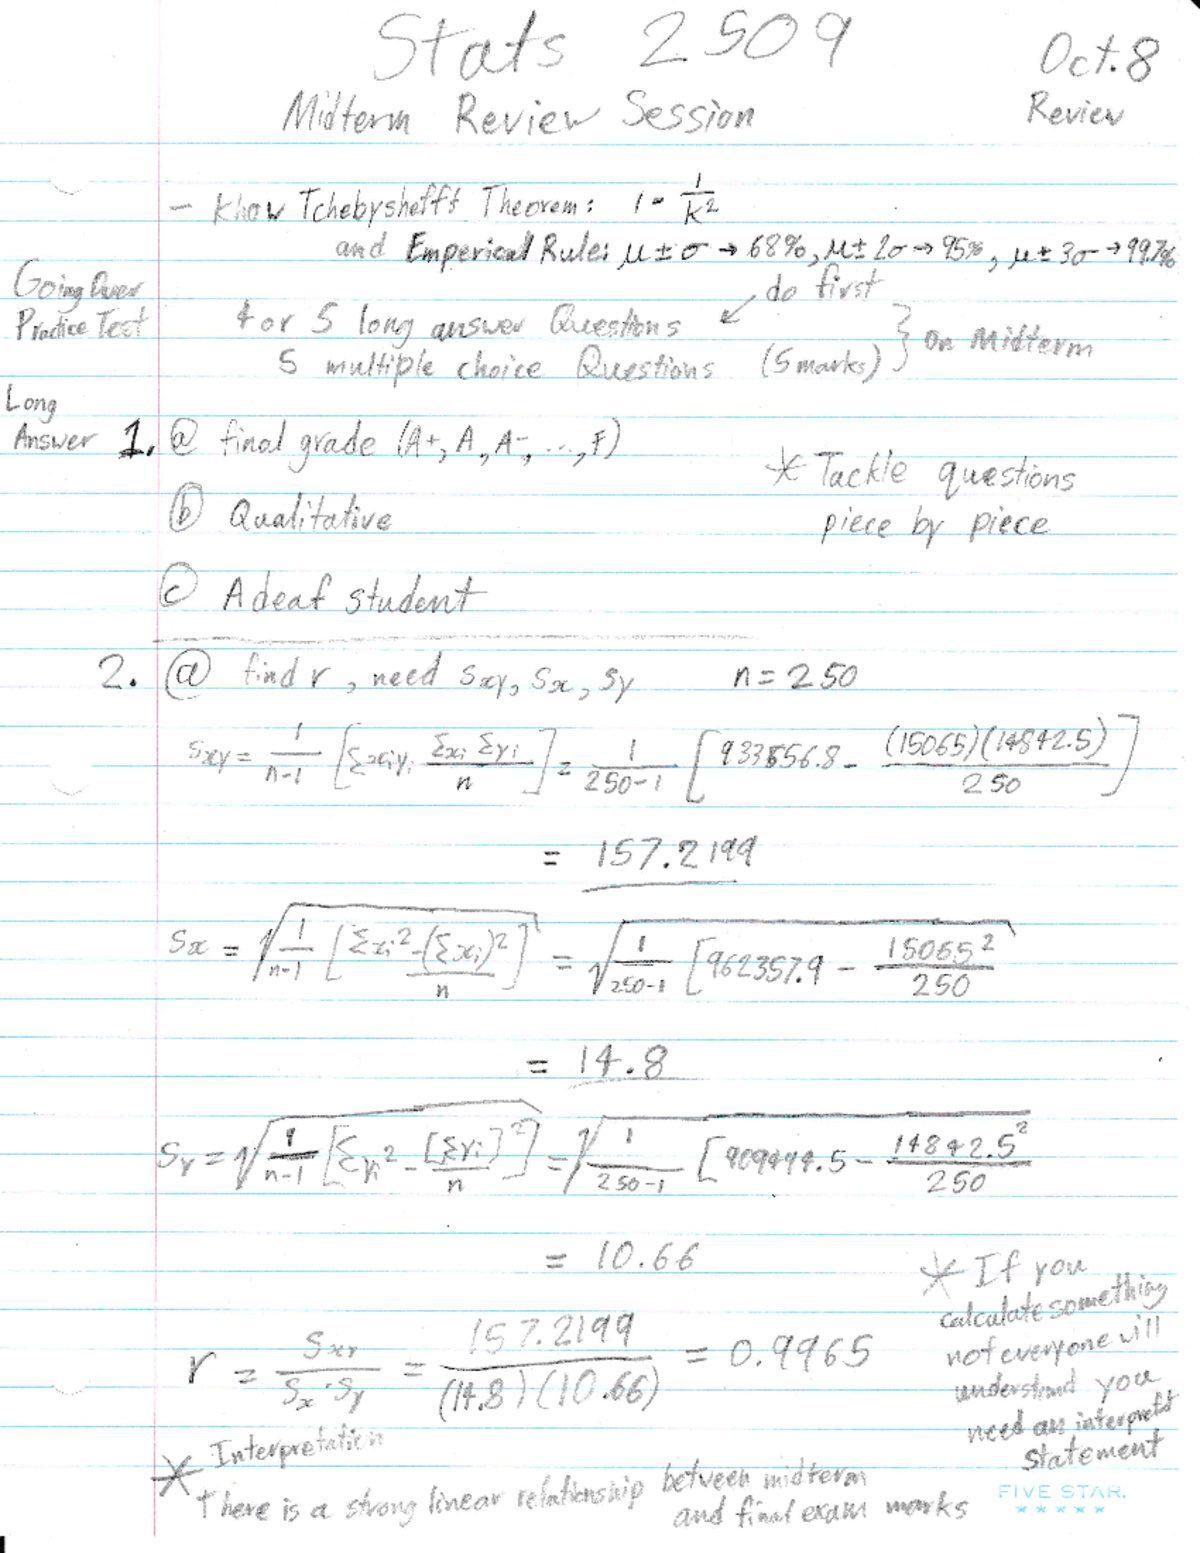 Stats 2509
Oct. 8
Midterm Review Session
Review
- Know Tchebysheff's Theorem: 1 - 1/k²
and Emperical Rule: μ ± σ → 68%, μ ± 2σ → 95%, μ ± 3σ → 99.7%
Going Over
Practice Test
do first
4 or 5 long answer Questions
5 multiple choice Questions (5 marks) } on Midterm
Long
Answer
1. ⓐ final grade (A+, A, A-, ..., F)
* Tackle questions
piece by piece
ⓑ Qualitative
ⓒ A deaf student
2. ⓐ find r, need Sxy, Sx, Sy n = 250
Sxy = 1/(n-1) [Σxiyi - ΣxiΣyi/n] = 1/(250-1) [933556.8 - (15065)(14842.5)/250]
= 157.2199
Sx = √(1/(n-1) [Σxi² - (Σxi)²/n]) = √(1/(250-1) [962357.9 - 15065²/250
= 14.8
Sy = √(1/(n-1) [Σyi² - [Σyi]²/n]) = √(1/(250-1) [909444.5 - 14842.5²/250
= 10.66
r = Sxy/(Sx·Sy) = 157.2199/((14.8)(10.66)) = 0.9965
* If you
calculate something
not everyone will
understand you
need an interpret
statement
* Interpretation
there is a strong linear relationship between midterm
and final exam marks
FIVE STAR.
★★★★★